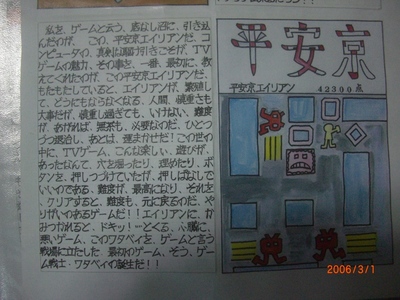 私を、ゲームと云う、底なし沼に、引き込
んだのが、この、平安京エイリアンだ。コ
ンピュータの、真剣な賭け引きこそが、TV
ゲームの魅力、その事を、一番、最初に、教
えてくれたのが、この平安京エイリアンだ。
もたもたしていると、エイリアンが、繁殖し
て、どうにもならなくなる。人間、慎重さも
大事だが、慎重し過ぎても、いけない。難度
が、あがれば、無茶も、必要なのだ、ひとつ
づつ退治し、あとは、運まかせだ!この世の
中に、TVゲーム、こんな楽しい、遊びが、
あったなんて、穴を掘ったり、埋めたり、ボ
タンを、押しつづけていたが、押しぱなしで
いいのである、難度が、最高になり、それを
クリアすると、難度も、元に戻るのだ、や
りがいのあるゲームだ!!エイリアンに、か
みつかれると、ドキッ!…とくる、心臓に、
悪いゲーム、このワタベイを、ゲームと言う
戦場に立たした、最初のゲーム、そう、ゲー
ム戦士・ワタベイの誕生だ!!
平安京
平安京エイリアン
42300点
2006/3/1